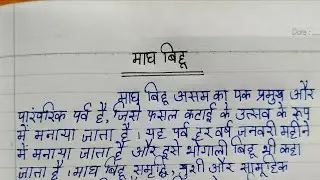 Date :
माघ बिहू
माघ बिहू असम का एक प्रमुख और
पारंपरिक पर्व है, जिसे फसल कटाई के उत्सव के रूप
में मनाया जाता है। यह पर्व हर वर्ष जनवरी महीने
में मनाया जाता है और इसे भोगाली बिहू भी कहा
जाता है। माघ बिहू समृद्धि, खुशी और सामूहिक